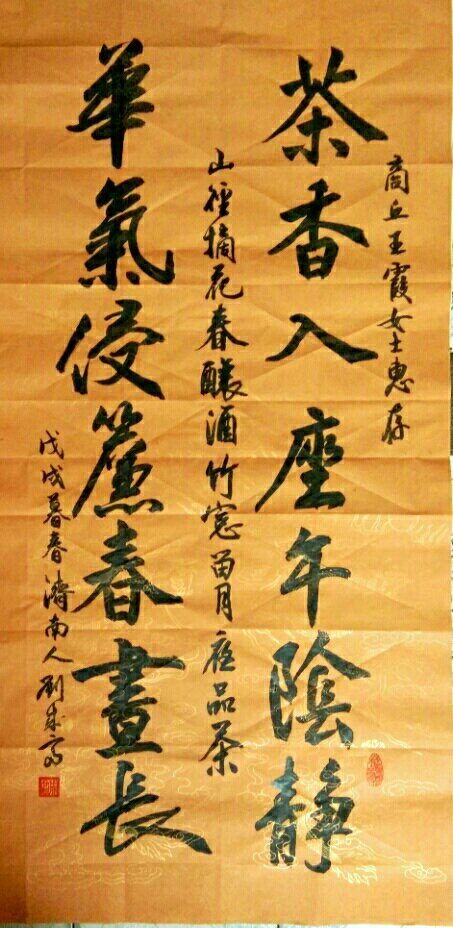 商丘王霞女士惠存
茶香入座午陰靜
山徑摘花春釀酒竹窓留月夜品茶
華氣侵簾春晝長
戊戌暮春濟南人劉成